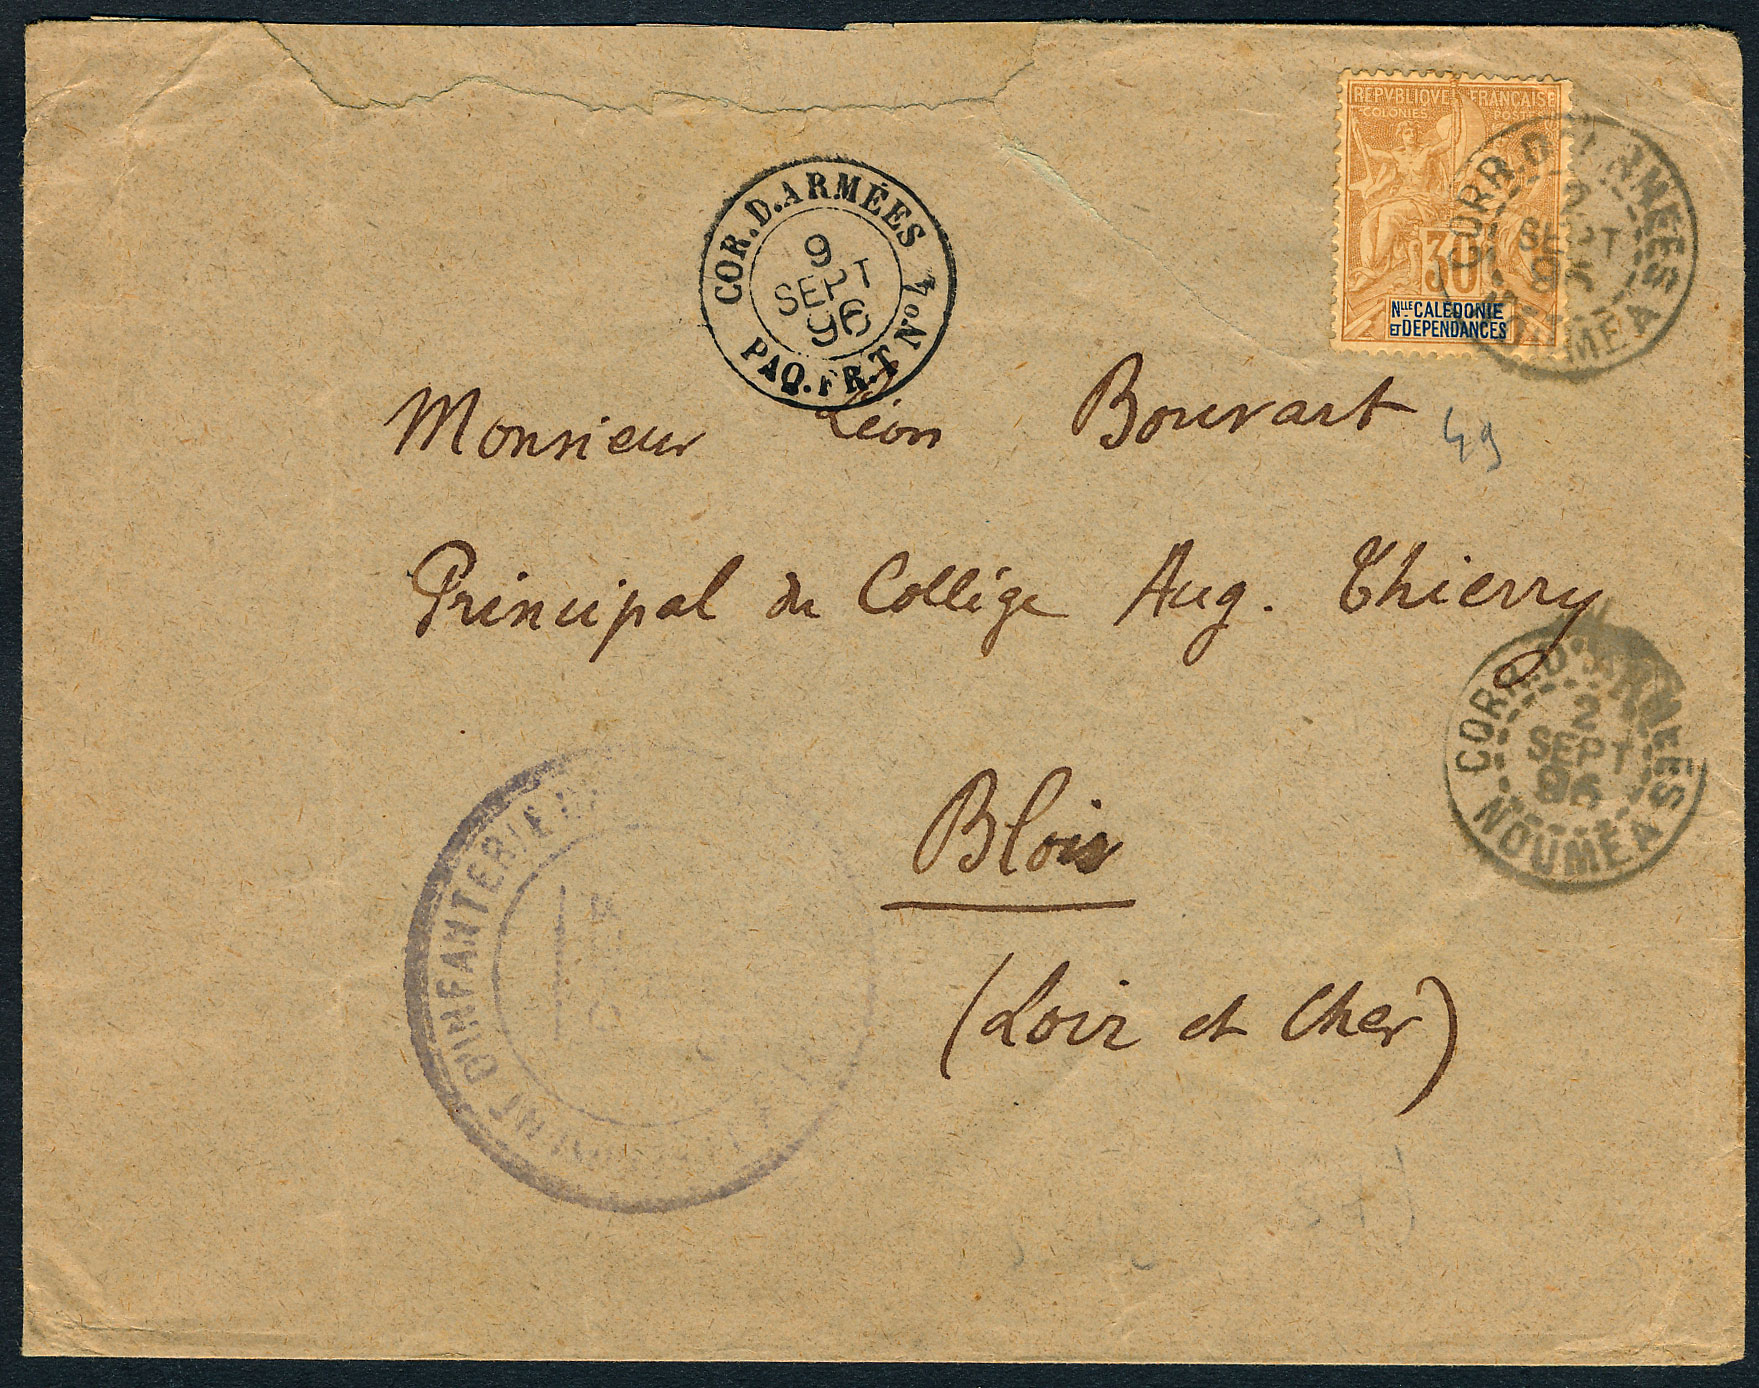 REPVBLIQVE FRANÇAISE
COLONIES POSTES
30
NLLE CALÉDONIE
ET DÉPENDANCES
CORR.D'ARMÉES
2
SEPT
96
NOUMÉA
COR.D.ARMÉES
9
SEPT
96
PAQ.FR.T No 4
Monsieur Léon Bouvart
49
Principal du Collège Aug. Thierry
CORR.D'ARMÉES
2
SEPT
96
NOUMÉA
Blois
(Loir et Cher)
D'INFANTERIE